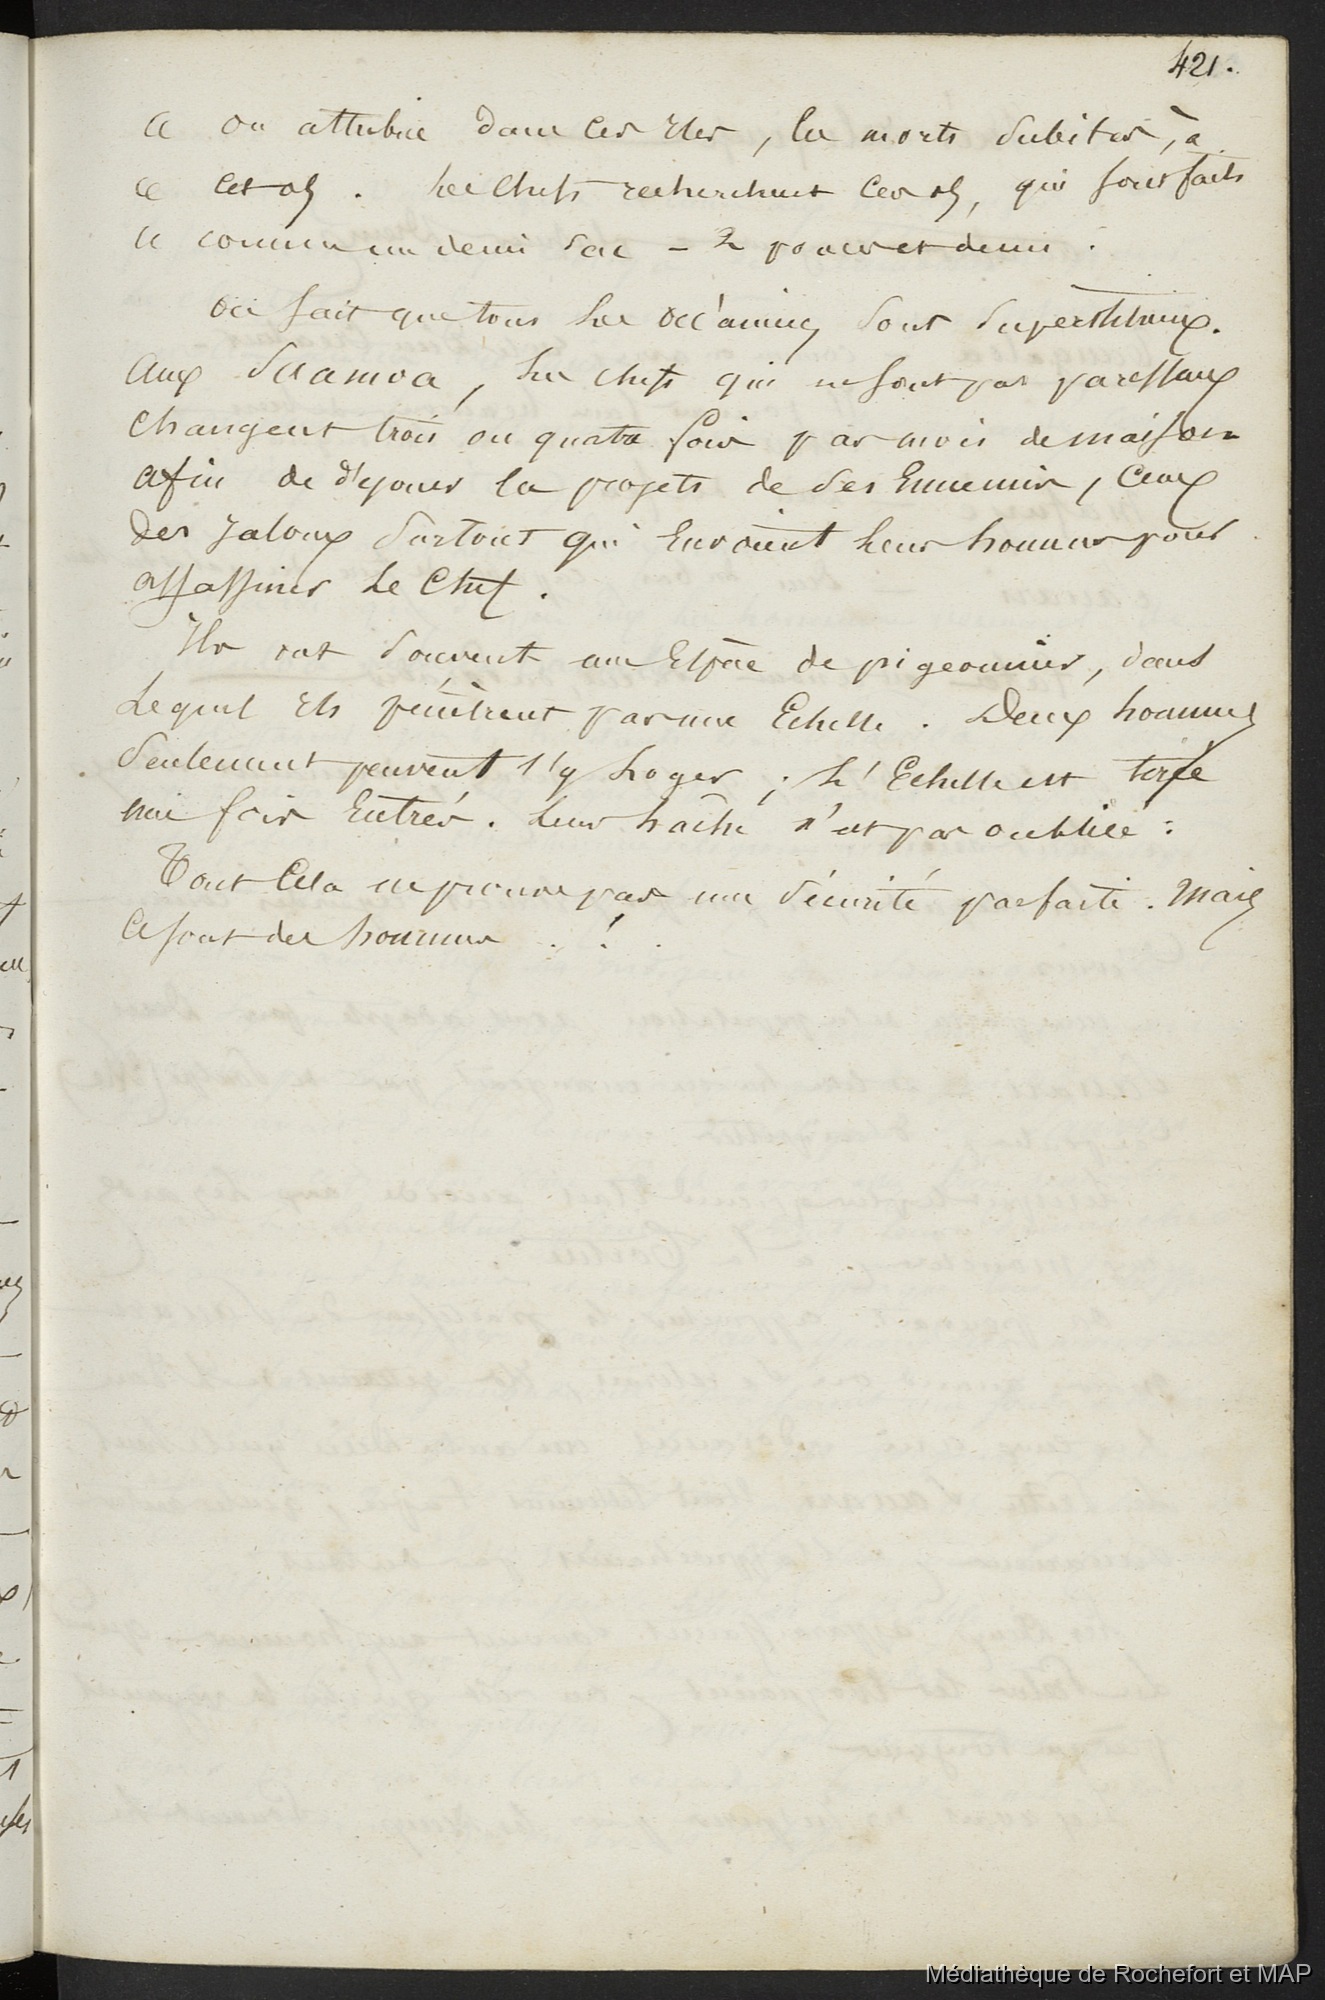 421.
« on attribue dans ces Iles, les morts subites, à
« cet os. Les chefs recherchent ces os, qui sont faits
« comme un demi sac – 2 pouces et demi.
On sait que tous les océaniens sont superstitieux.
Aux Saamoa, les chefs qui ne sont pas paresseux
changent trois ou quatre fois par mois de maison
afin de déjouer les projets de ses Ennemis, ceux
des jaloux surtout qui Envoient leurs hommes pour
assassiner le Chef.
Ils ont souvent une Espèce de pigeonnier, dans
lequel ils pénètrent par une Echelle. Deux hommes
seulement peuvent s'y loger; L'Echelle est tirée
une fois Entrés. Leur hache n'est pas oubliée:
Tout Cela ne prouve pas une sécurité parfaite. Mais
ce sont des hommes . ! .
Médiathèque de Rochefort et MAP